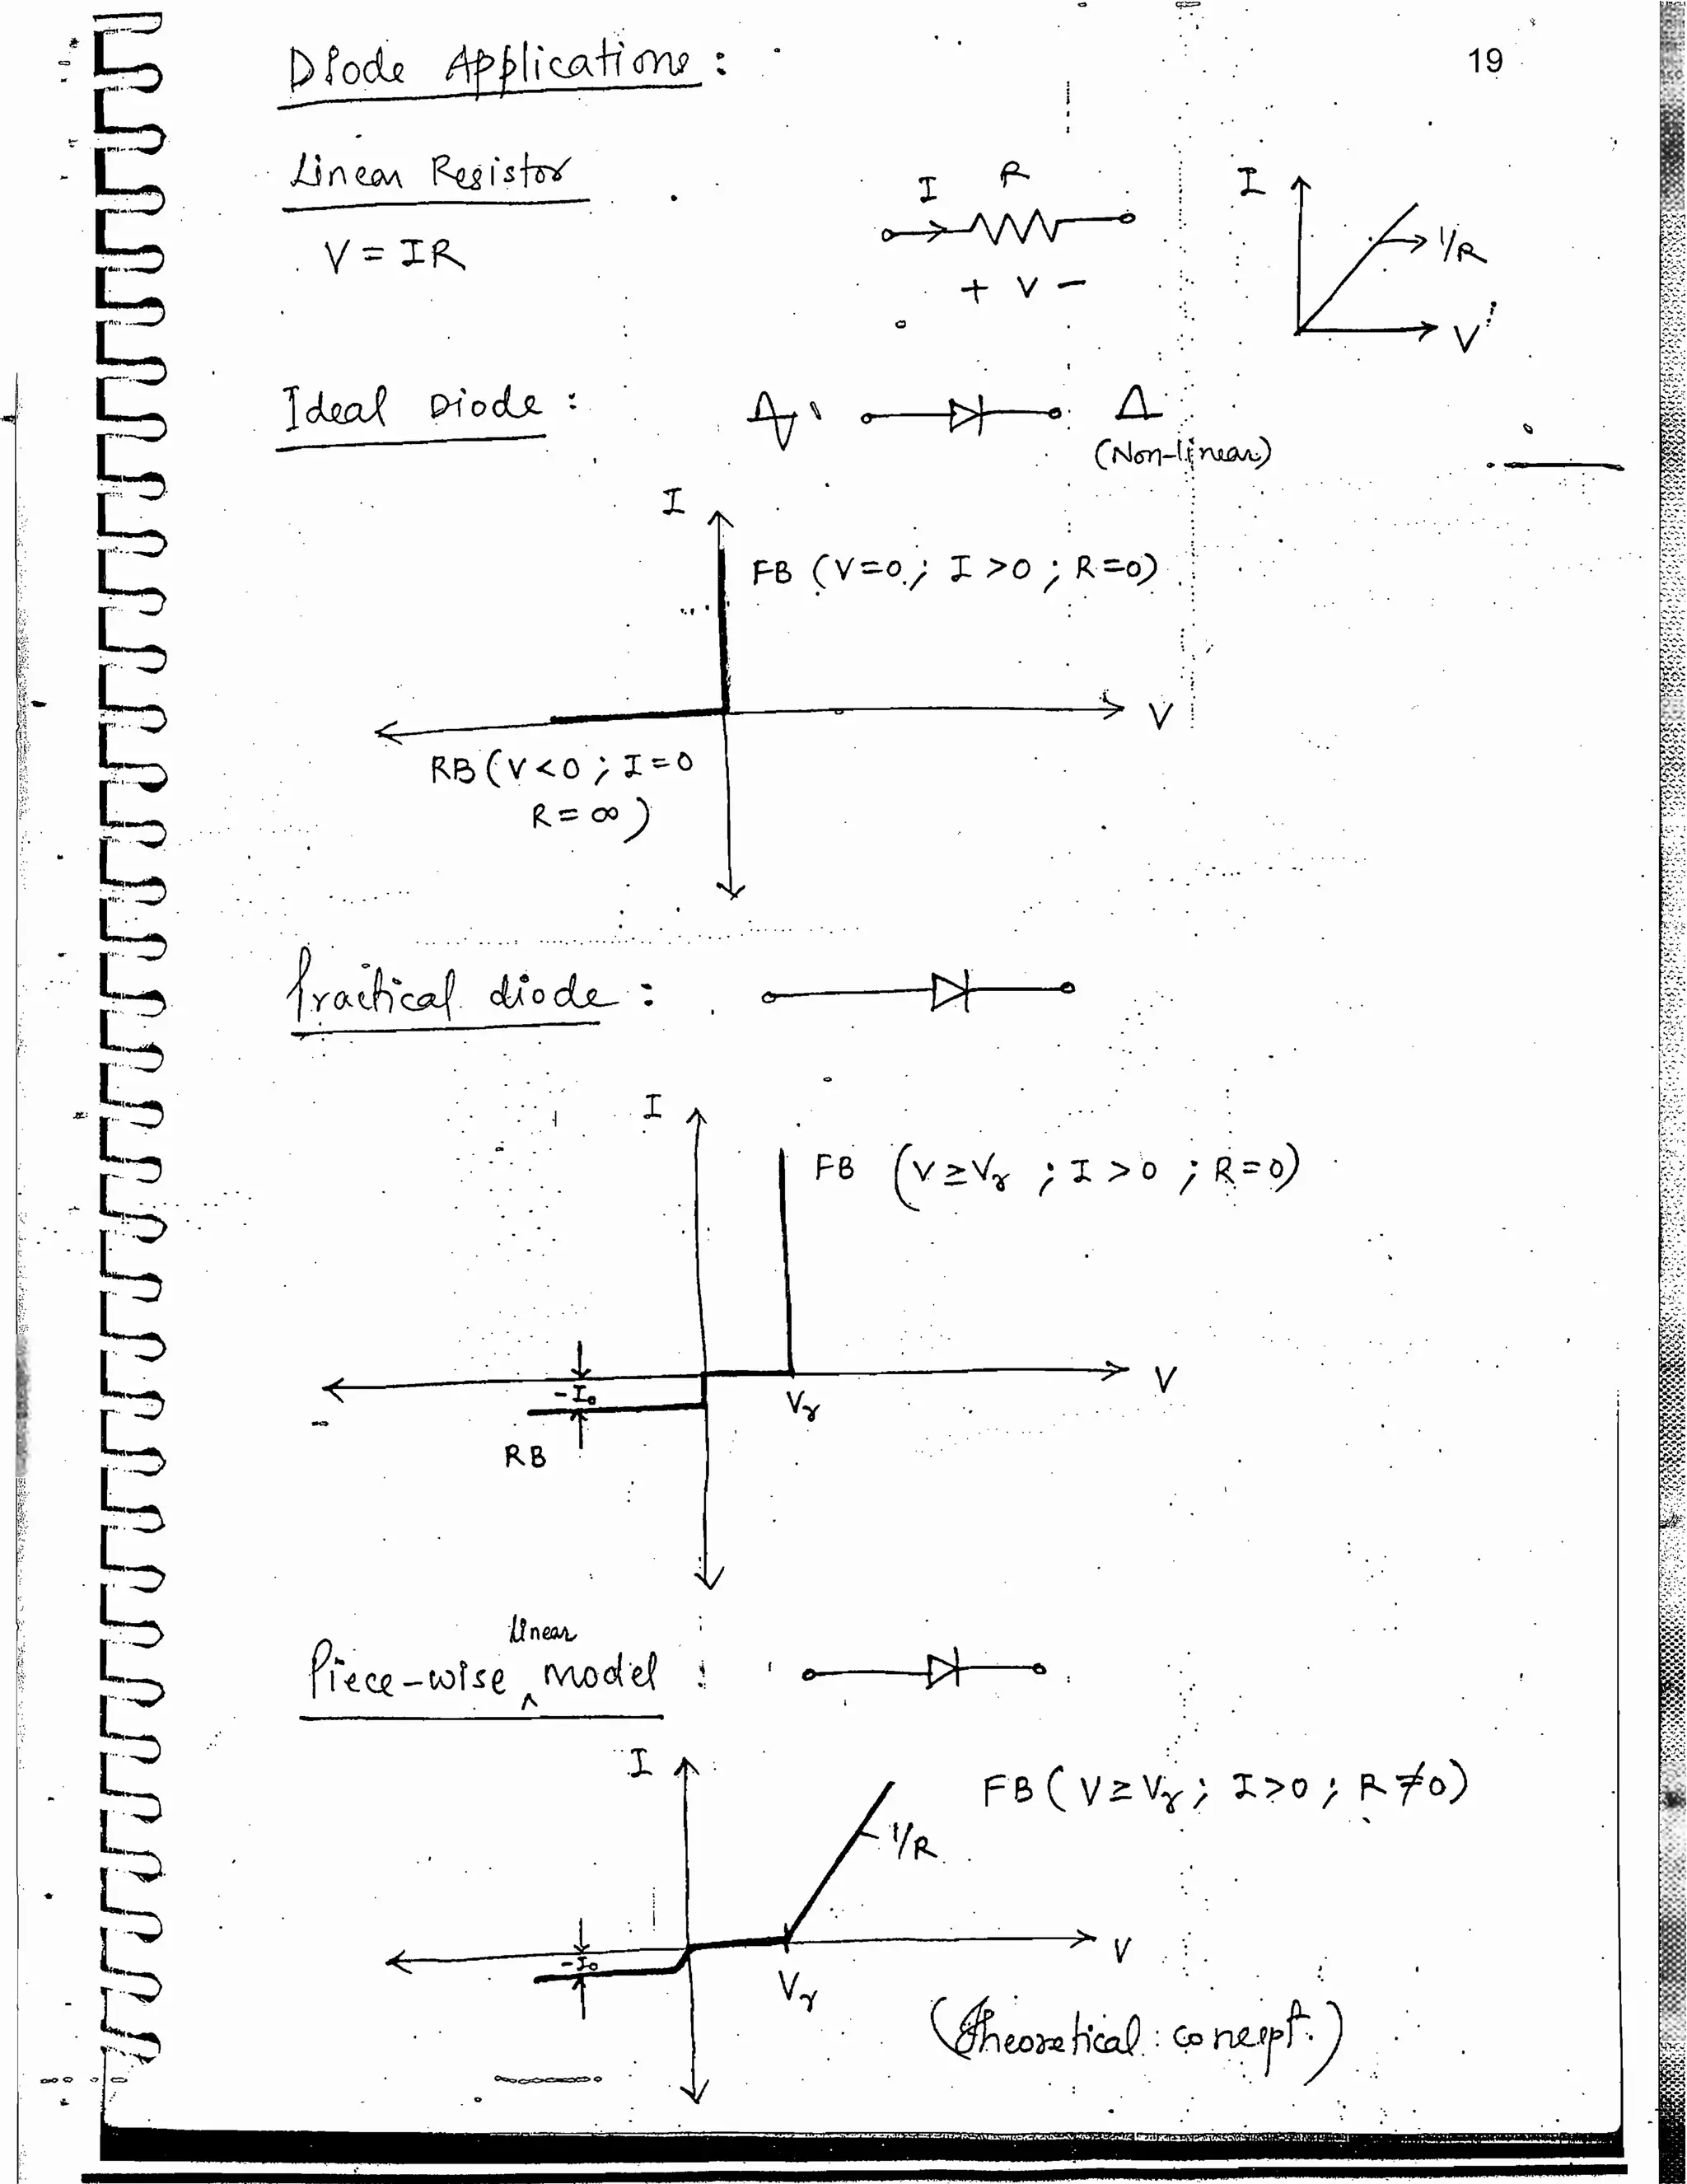 Diode Applications :
19
Linear Resistor
V = IR
I R
+ V -
I
1/R
V
Ideal Diode :
(Non-linear)
I
FB (V=0 ; I >0 ; R=0)
V
RB (V<0 ; I=0
R = ∞ )
Practical diode :
I
FB (V ≥ Vγ ; I > 0 ; R = 0)
V
-I₀
Vγ
RB
linear
Piece-wise ^ model :
I
FB ( V ≥ Vγ ; I > 0 ; R ≠ 0)
1/R
V
-I₀
Vγ
(Theoretical concept.)